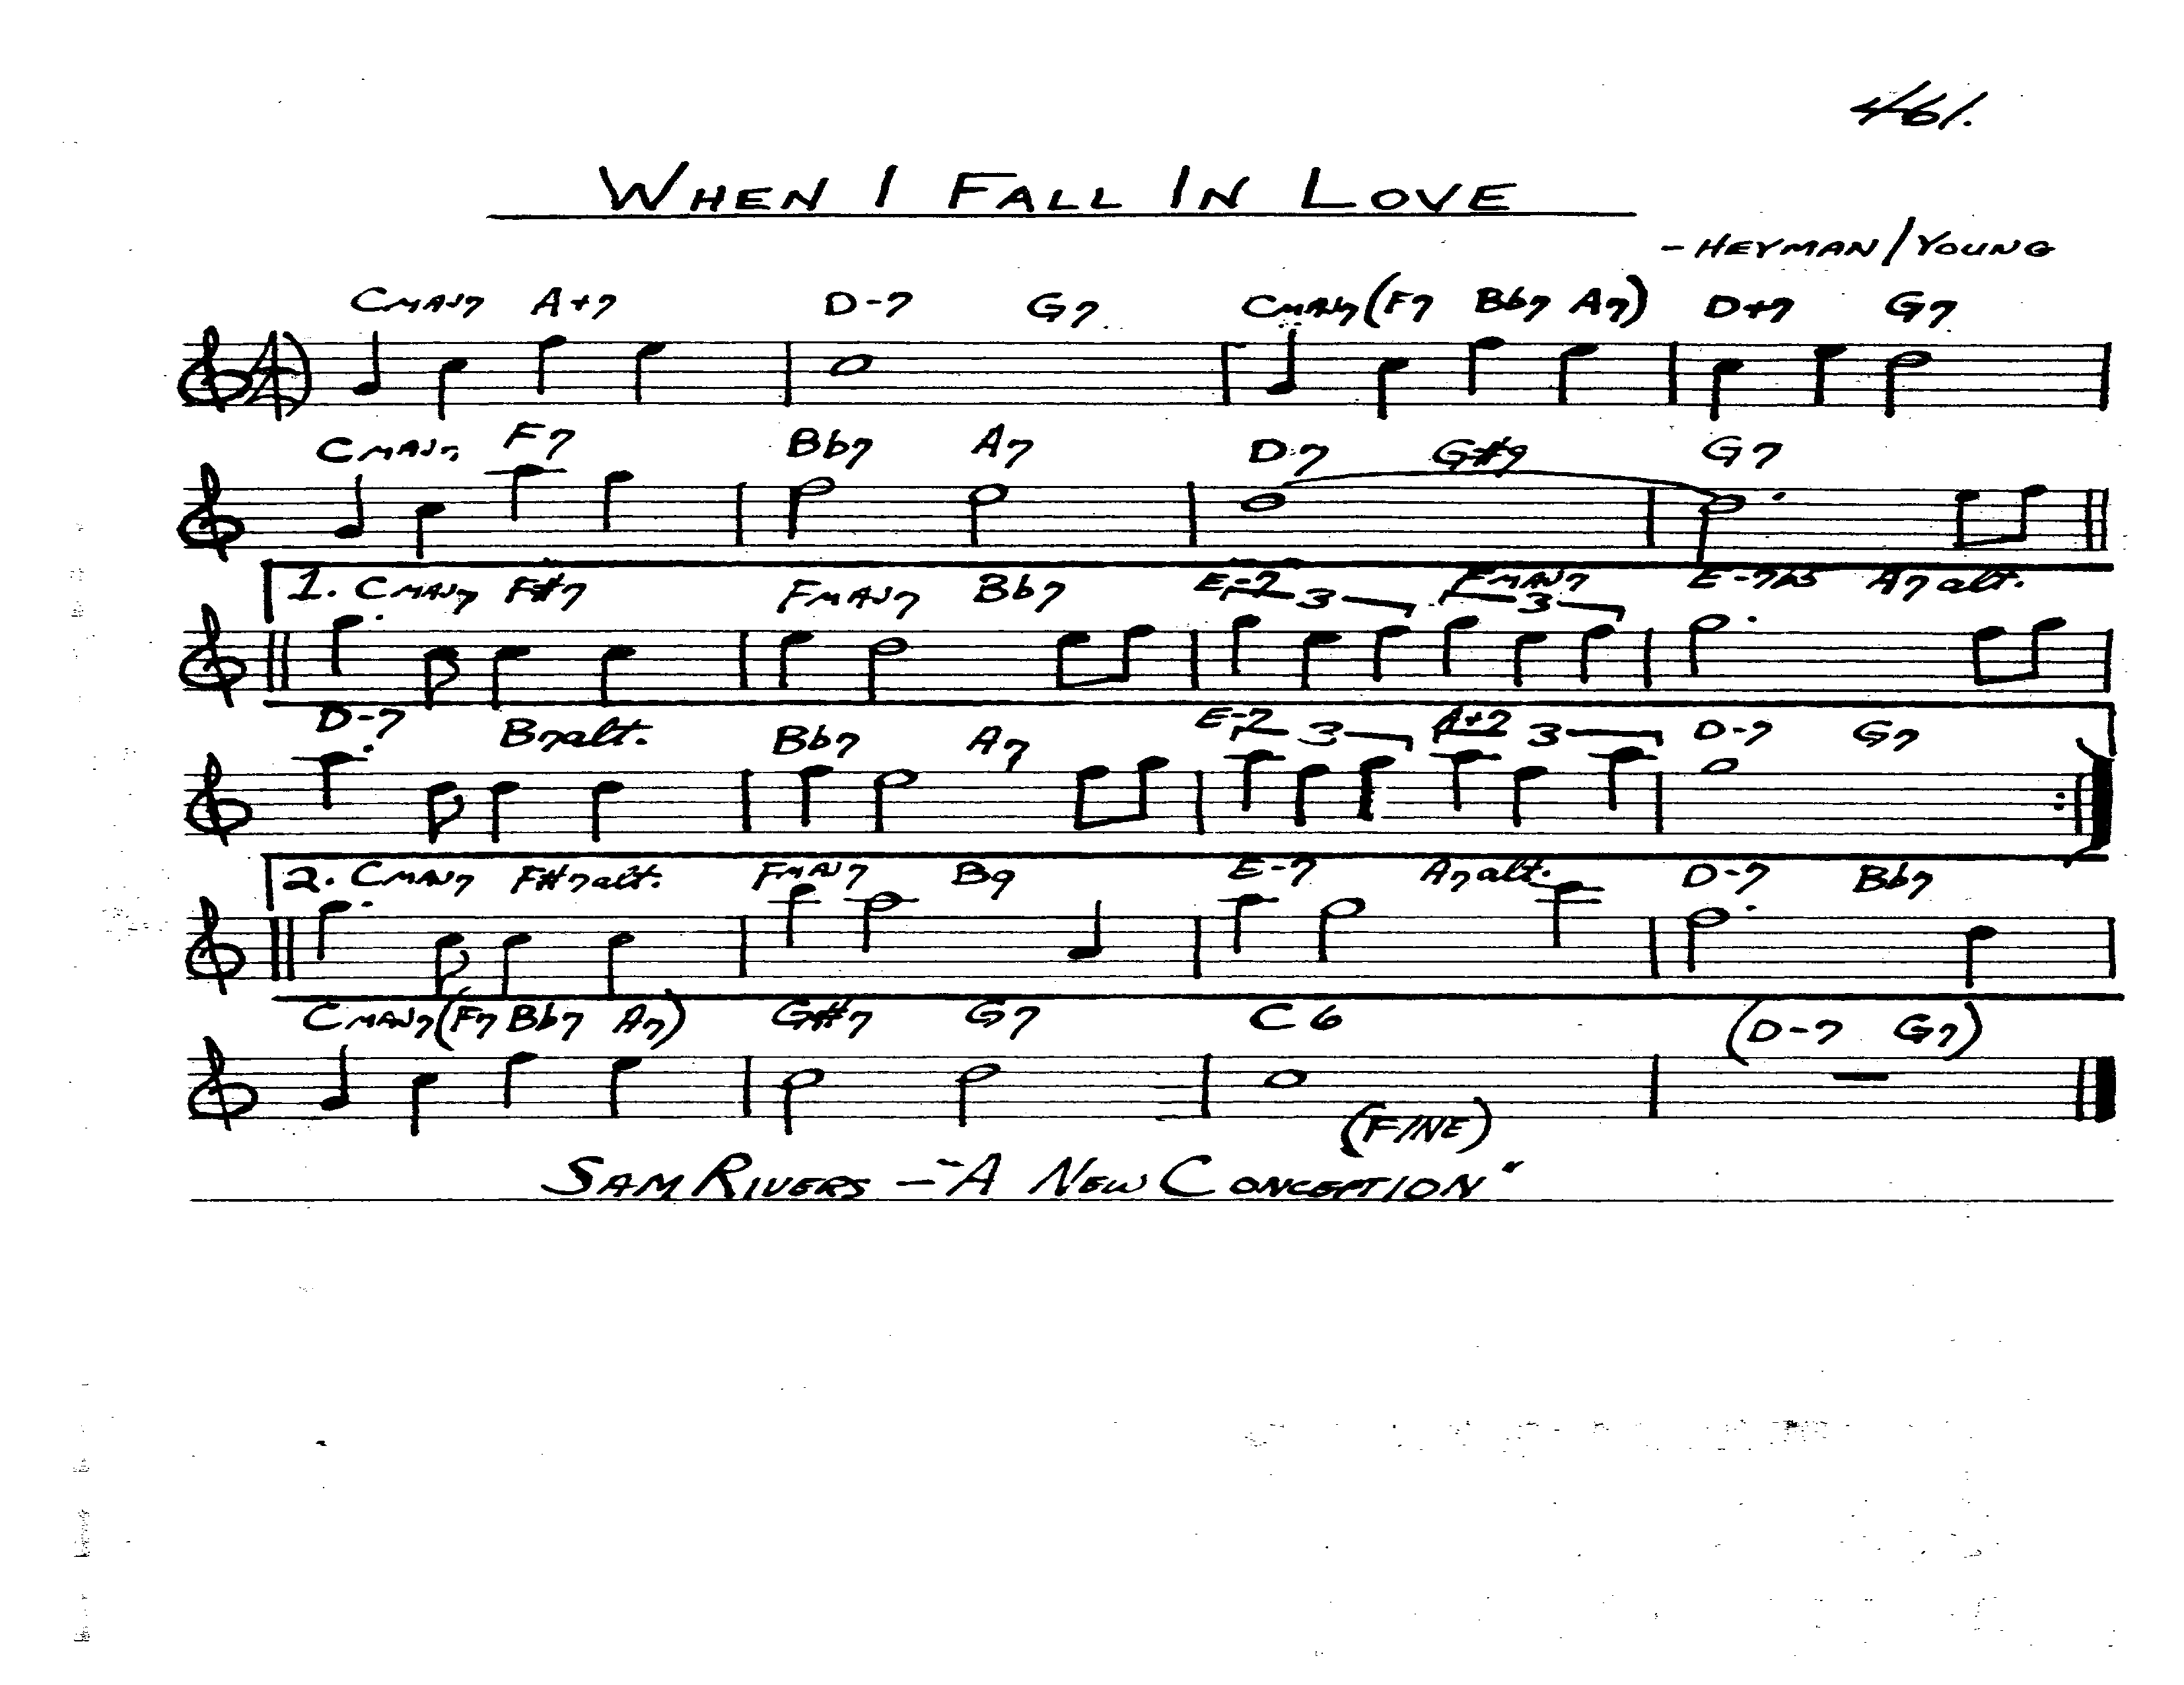 461.
WHEN I FALL IN LOVE
- HEYMAN / YOUNG
CMAJ7 A+7 D-7 G7 CMAJ7 (F7 Bb7 A7) D+7 G7
CMAJ7 F7 Bb7 A7 D-7 G#7 G7
1. CMAJ7 F#7 FMAJ7 Bb7 E-7 FMAJ7 E-7b5 A7 alt.
3 3
D-7 B7alt. Bb7 A7 E-7 A+7 D-7 G7
3 3
2. CMAJ7 F#7alt. FMAJ7 B9 E-7 A7 alt. D-7 Bb7
CMAJ7 (F7 Bb7 A7) G#7 G7 C6 (D-7 G7)
(FINE)
SAM RIVERS - "A NEW CONCEPTION"